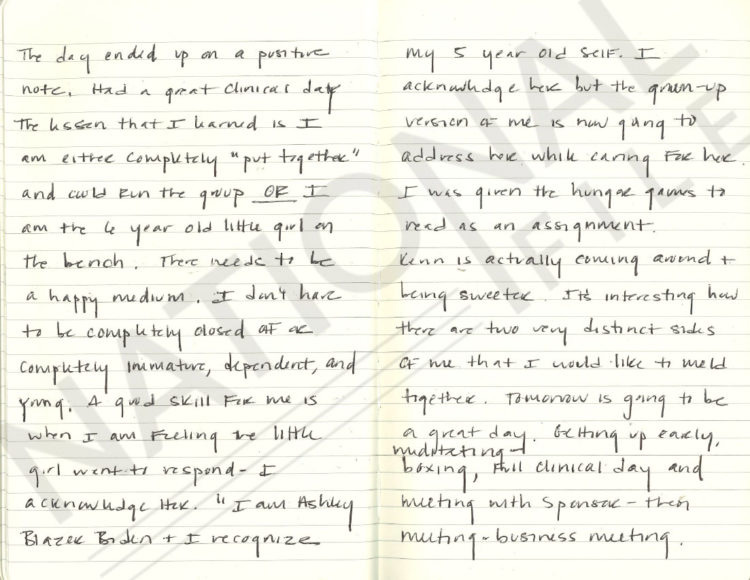 The day ended up on a positive
note. Had a great clinical day
The lesson that I learned is I
am either completely "put together"
and could run the group OR I
am the 6 year old little girl on
the bench. There needs to be
a happy medium. I don't have
to be completely closed off or
completely immature, dependent, and
young. A good skill for me is
when I am feeling the little
girl want to respond - I
acknowledge her. "I am Ashley
Blazer Biden + I recognize
my 5 year old self. I
acknowledge her but the grown-up
version of me is now going to
address her while caring for her.
I was given the hunger games to
read as an assignment.
is actually coming around +
being sweeter. It's interesting how
there are two very distinct sides
of me that I would like to meld
together. Tomorrow is going to be
a great day. Getting up early,
meditating -
boxing, full clinical day and
meeting with sponsor - then
meeting - business meeting.
NATIONAL
FILE